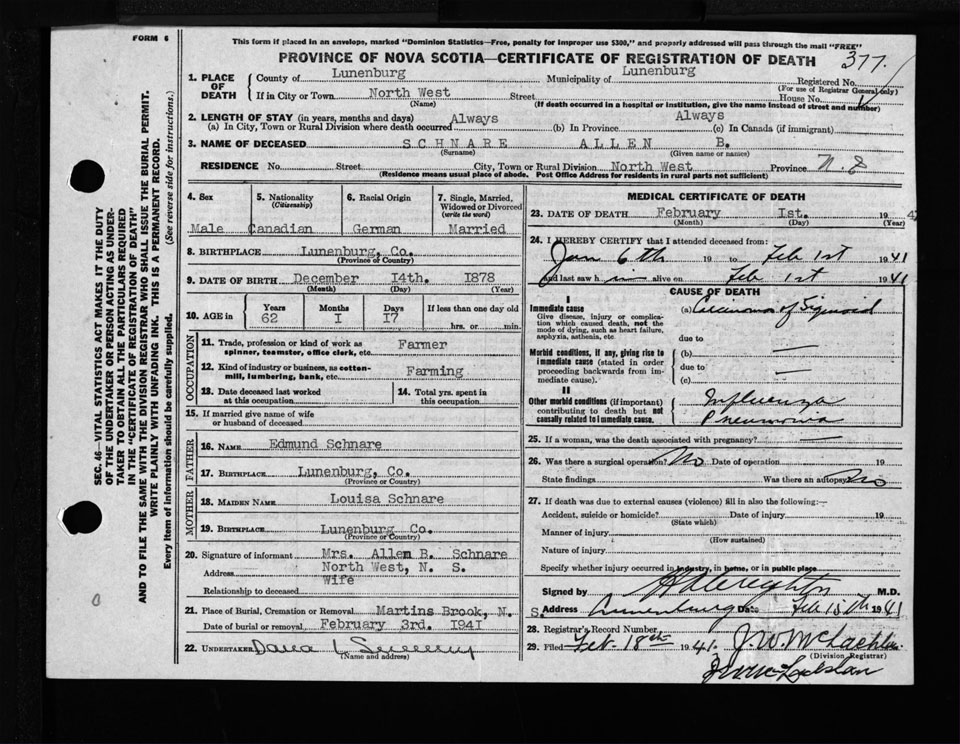 FORM 6
This form if placed in an envelope, marked "Dominion Statistics—Free, penalty for improper use $300," and properly addressed will pass through the mail "FREE"
PROVINCE OF NOVA SCOTIA—CERTIFICATE OF REGISTRATION OF DEATH
377.
SEC. 46—VITAL STATISTICS ACT MAKES IT THE DUTY
OF THE UNDERTAKER OR PERSON ACTING AS UNDER-
TAKER TO OBTAIN ALL THE PARTICULARS REQUIRED
IN THE "CERTIFICATE OF REGISTRATION OF DEATH"
AND TO FILE THE SAME WITH THE DIVISION REGISTRAR WHO SHALL ISSUE THE BURIAL PERMIT.
WRITE PLAINLY WITH UNFADING INK. THIS IS A PERMANENT RECORD.
Every item of information should be carefully supplied. (See reverse side for instructions.)
1. PLACE OF DEATH
County of Lunenburg Municipality of Lunenburg Registered No.
(For use of Registrar General only)
If in City or Town North West Street House No.
(Name) (If death occurred in a hospital or institution, give the name instead of street and number)
2. LENGTH OF STAY (in years, months and days)
(a) In City, Town or Rural Division where death occurred Always (b) In Province Always (c) In Canada (if immigrant)
3. NAME OF DECEASED SCHNARE ALLEN B.
(Surname) (Given name or names)
RESIDENCE No. Street City, Town or Rural Division North West Province N.S
(Residence means usual place of abode. Post Office Address for residents in rural parts not sufficient)
4. Sex
Male
5. Nationality (Citizenship)
Canadian
6. Racial Origin
German
7. Single, Married, Widowed or Divorced (write the word)
Married
8. BIRTHPLACE Lunenburg, Co.
(Province or Country)
9. DATE OF BIRTH December I4th. I878
(Month) (Day) (Year)
10. AGE in Years 62 Months I Days I7 If less than one day old hrs. or min.
OCCUPATION
11. Trade, profession or kind of work as spinner, teamster, office clerk, etc. Farmer
12. Kind of industry or business, as cotton-mill, lumbering, bank, etc. Farming
13. Date deceased last worked at this occupation
14. Total yrs. spent in this occupation
15. If married give name of wife or husband of deceased
FATHER
16. NAME Edmund Schnare
17. BIRTHPLACE Lunenburg, Co.
(Province or Country)
MOTHER
18. MAIDEN NAME Louisa Schnare
19. BIRTHPLACE Lunenburg Co.
(Province or Country)
20. Signature of informant Mrs. Allen B. Schnare
Address North West, N. S.
Relationship to deceased Wife
21. Place of Burial, Cremation or Removal Martins Brook, N. S.
Date of burial or removal February 3rd. I94I
22. UNDERTAKER
(Name and address)
MEDICAL CERTIFICATE OF DEATH
23. DATE OF DEATH February Ist. 19 4
(Month) (Day) (Year)
24. I HEREBY CERTIFY that I attended deceased from:
Jan 6th 19 to Feb 1st 1941
and last saw him alive on Feb 1st 1941
CAUSE OF DEATH
I
Immediate cause
Give disease, injury or complication which caused death, not the mode of dying, such as heart failure, asphyxia, asthenia, etc.
(a) Carcinoma of Sigmoid
due to
Morbid conditions, if any, giving rise to immediate cause (stated in order proceeding backwards from immediate cause).
(b) —
due to
(c) —
II
Other morbid conditions (if important) contributing to death but not causally related to immediate cause.
Influenza
Pneumonia
25. If a woman, was the death associated with pregnancy? —
26. Was there a surgical operation? No Date of operation 19
State findings Was there an autopsy? No
27. If death was due to external causes (violence) fill in also the following:—
Accident, suicide or homicide? Date of injury 19
(State which)
Manner of injury
(How sustained)
Nature of injury
Specify whether injury occurred in industry, in home, or in public place
Signed by M.D.
Address Lunenburg Date Feb 15th 1941
28. Registrar's Record Number
29. Filed Feb. 18th 1941. J.W. McLachlan
(Division Registrar)